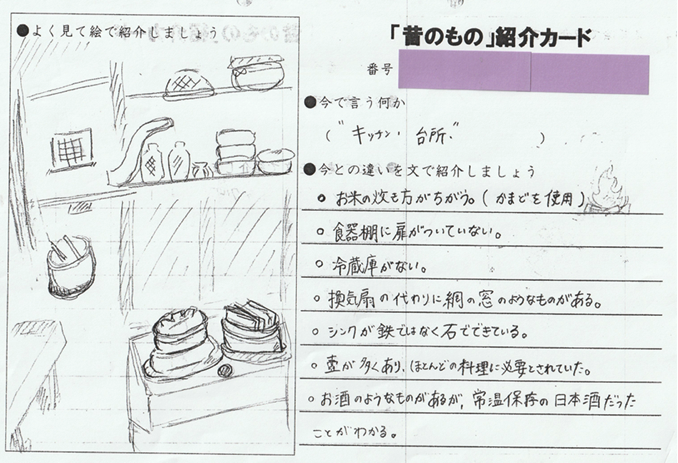 ●よく見て絵で紹介しましょう
「昔のもの」紹介カード
番号
●今で言う何か
(〝キッチン・台所〟)
●今との違いを文で紹介しましょう
○お米の炊き方がちがう。(かまどを使用)
○食器棚に扉がついていない。
○冷蔵庫がない。
○換気扇の代わりに網の窓のようなものがある。
○シンクが鉄ではなく石でできている。
○壺が多くあり、ほとんどの料理に必要とされていた。
○お酒のようなものがあるが、常温保存の日本酒だった
ことがわかる。